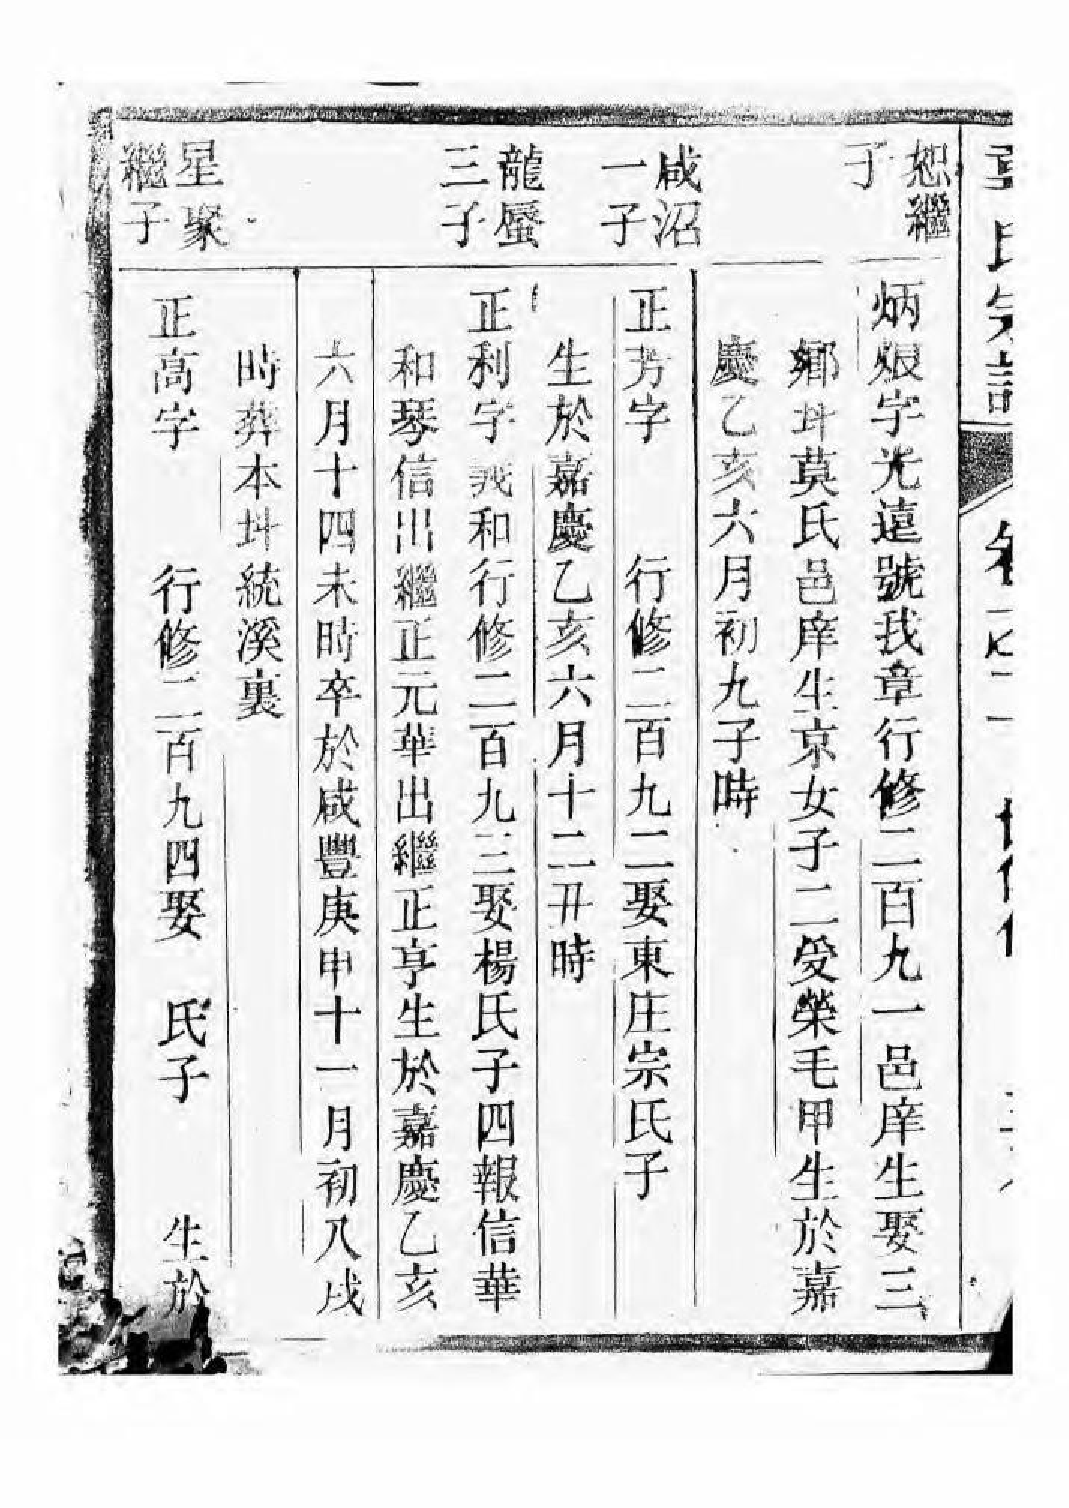 氏宗譜 卷之二
恕繼
子
炳烺字光遠號我章行修二百九一邑庠生娶三
鄉圤莫氏邑庠生京女子二受榮毛甲生於嘉
慶乙亥六月初九子時
咸沼
一子
正芳字 行修二百九二娶東庄宗氏子
生於嘉慶乙亥六月十二丑時
龍蜃
三子
正利字義和行修二百九三娶楊氏子四報信華
和琴信出繼正元華出繼正亨生於嘉慶乙亥
六月十四未時卒於咸豐庚申十一月初八戌
時葬本圤統溪裏
星聚
繼子
正高字 行修二百九四娶 氏子 生於